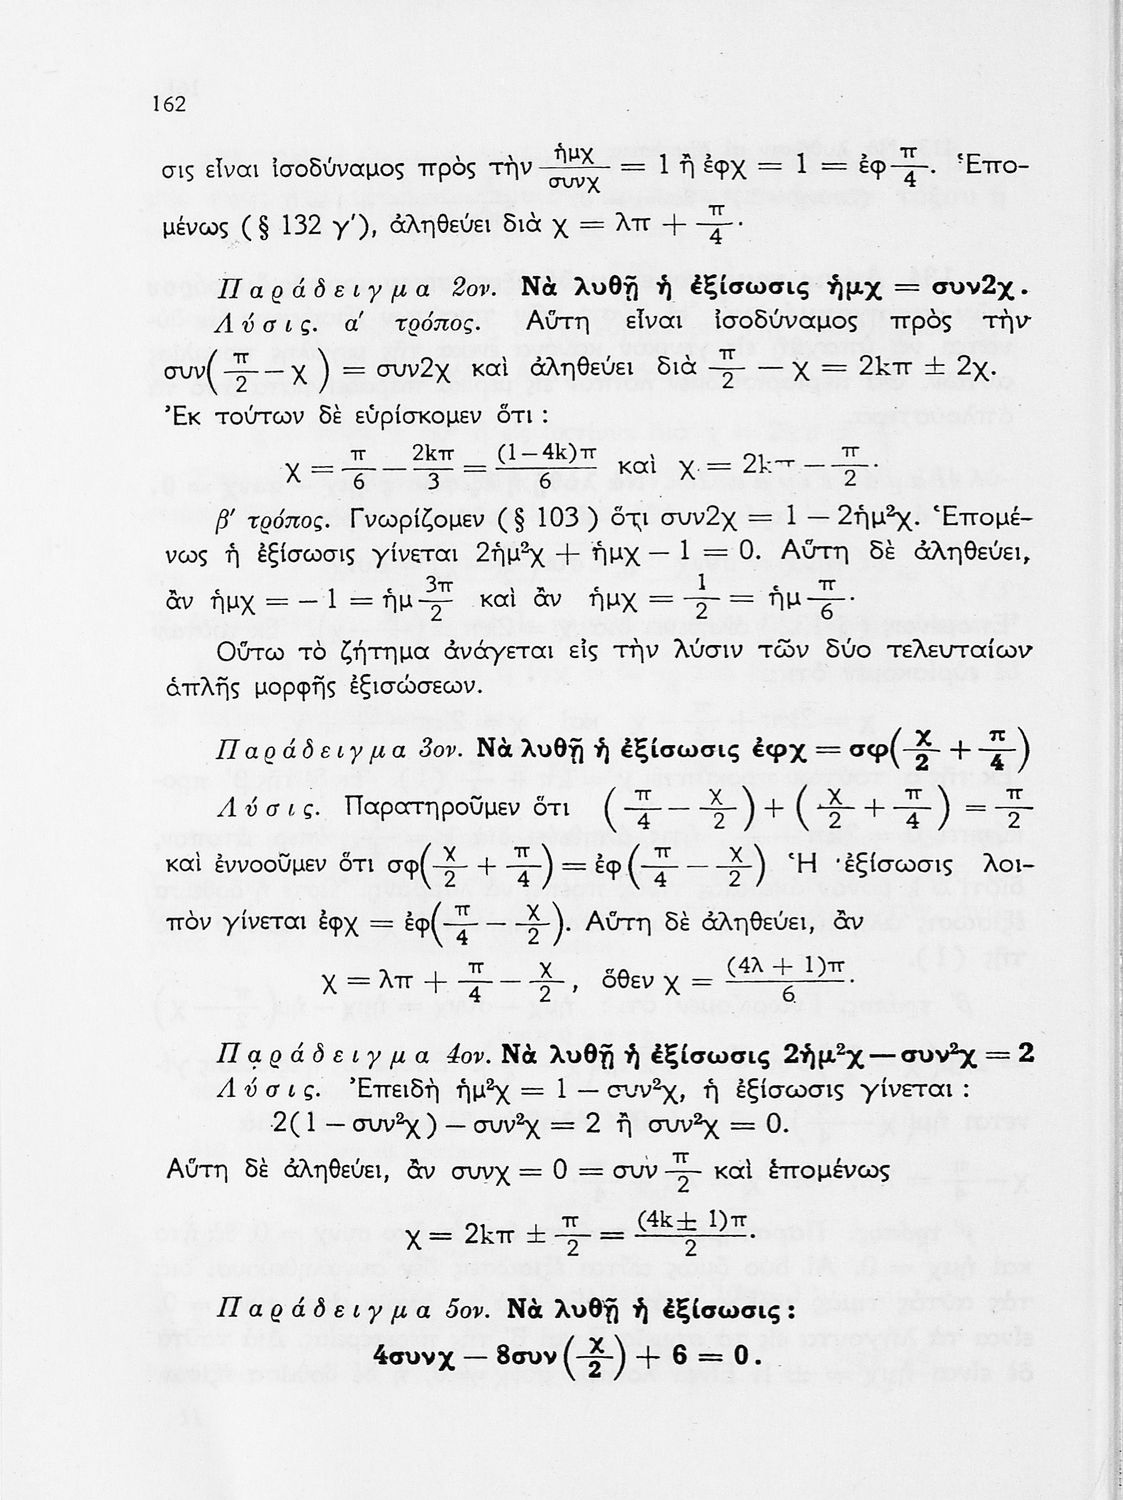 162
σις εἶναι ἰσοδύναμος πρὸς τὴν ἡμχ/συνχ = 1 ἢ ἐφχ = 1 = ἐφ π/4. Ἑπο-
μένως ( § 132 γ′), ἀληθεύει διὰ χ = λπ + π/4.
Παράδειγμα 2ον. Νὰ λυθῇ ἡ ἐξίσωσις ἡμχ = συν2χ.
Λύσις. α′ τρόπος. Αὕτη εἶναι ἰσοδύναμος πρὸς τὴν
συν( π/2 — χ ) = συν2χ καὶ ἀληθεύει διὰ π/2 — χ = 2kπ ± 2χ.
Ἐκ τούτων δὲ εὑρίσκομεν ὅτι :
χ = π/6 — 2kπ/3 = (1—4k)π/6 καὶ χ = 2kπ — π/2.
β′ τρόπος. Γνωρίζομεν ( § 103 ) ὅτι συν2χ = 1 — 2ἡμ²χ. Ἑπομέ-
νως ἡ ἐξίσωσις γίνεται 2ἡμ²χ + ἡμχ — 1 = 0. Αὕτη δὲ ἀληθεύει,
ἂν ἡμχ = — 1 = ἡμ 3π/2 καὶ ἂν ἡμχ = 1/2 = ἡμ π/6.
Οὕτω τὸ ζήτημα ἀνάγεται εἰς τὴν λύσιν τῶν δύο τελευταίων
ἁπλῆς μορφῆς ἐξισώσεων.
Παράδειγμα 3ον. Νὰ λυθῇ ἡ ἐξίσωσις ἐφχ = σφ( χ/2 + π/4 )
Λύσις. Παρατηροῦμεν ὅτι ( π/4 — χ/2 ) + ( χ/2 + π/4 ) = π/2
καὶ ἐννοοῦμεν ὅτι σφ( χ/2 + π/4 ) = ἐφ ( π/4 — χ/2 ) Ἡ ἐξίσωσις λοι-
πὸν γίνεται ἐφχ = ἐφ( π/4 — χ/2 ). Αὕτη δὲ ἀληθεύει, ἂν
χ = λπ + π/4 — χ/2 , ὅθεν χ = (4λ + 1)π/6.
Παράδειγμα 4ον. Νὰ λυθῇ ἡ ἐξίσωσις 2ἡμ²χ — συν²χ = 2
Λύσις. Ἐπειδὴ ἡμ²χ = 1 — συν²χ, ἡ ἐξίσωσις γίνεται :
2( 1 — συν²χ ) — συν²χ = 2 ἢ συν²χ = 0.
Αὕτη δὲ ἀληθεύει, ἂν συνχ = 0 = συν π/2 καὶ ἑπομένως
χ = 2kπ ± π/2 = (4k ± 1)π/2.
Παράδειγμα 5ον. Νὰ λυθῇ ἡ ἐξίσωσις :
4συνχ — 8συν ( χ/2 ) + 6 = 0.